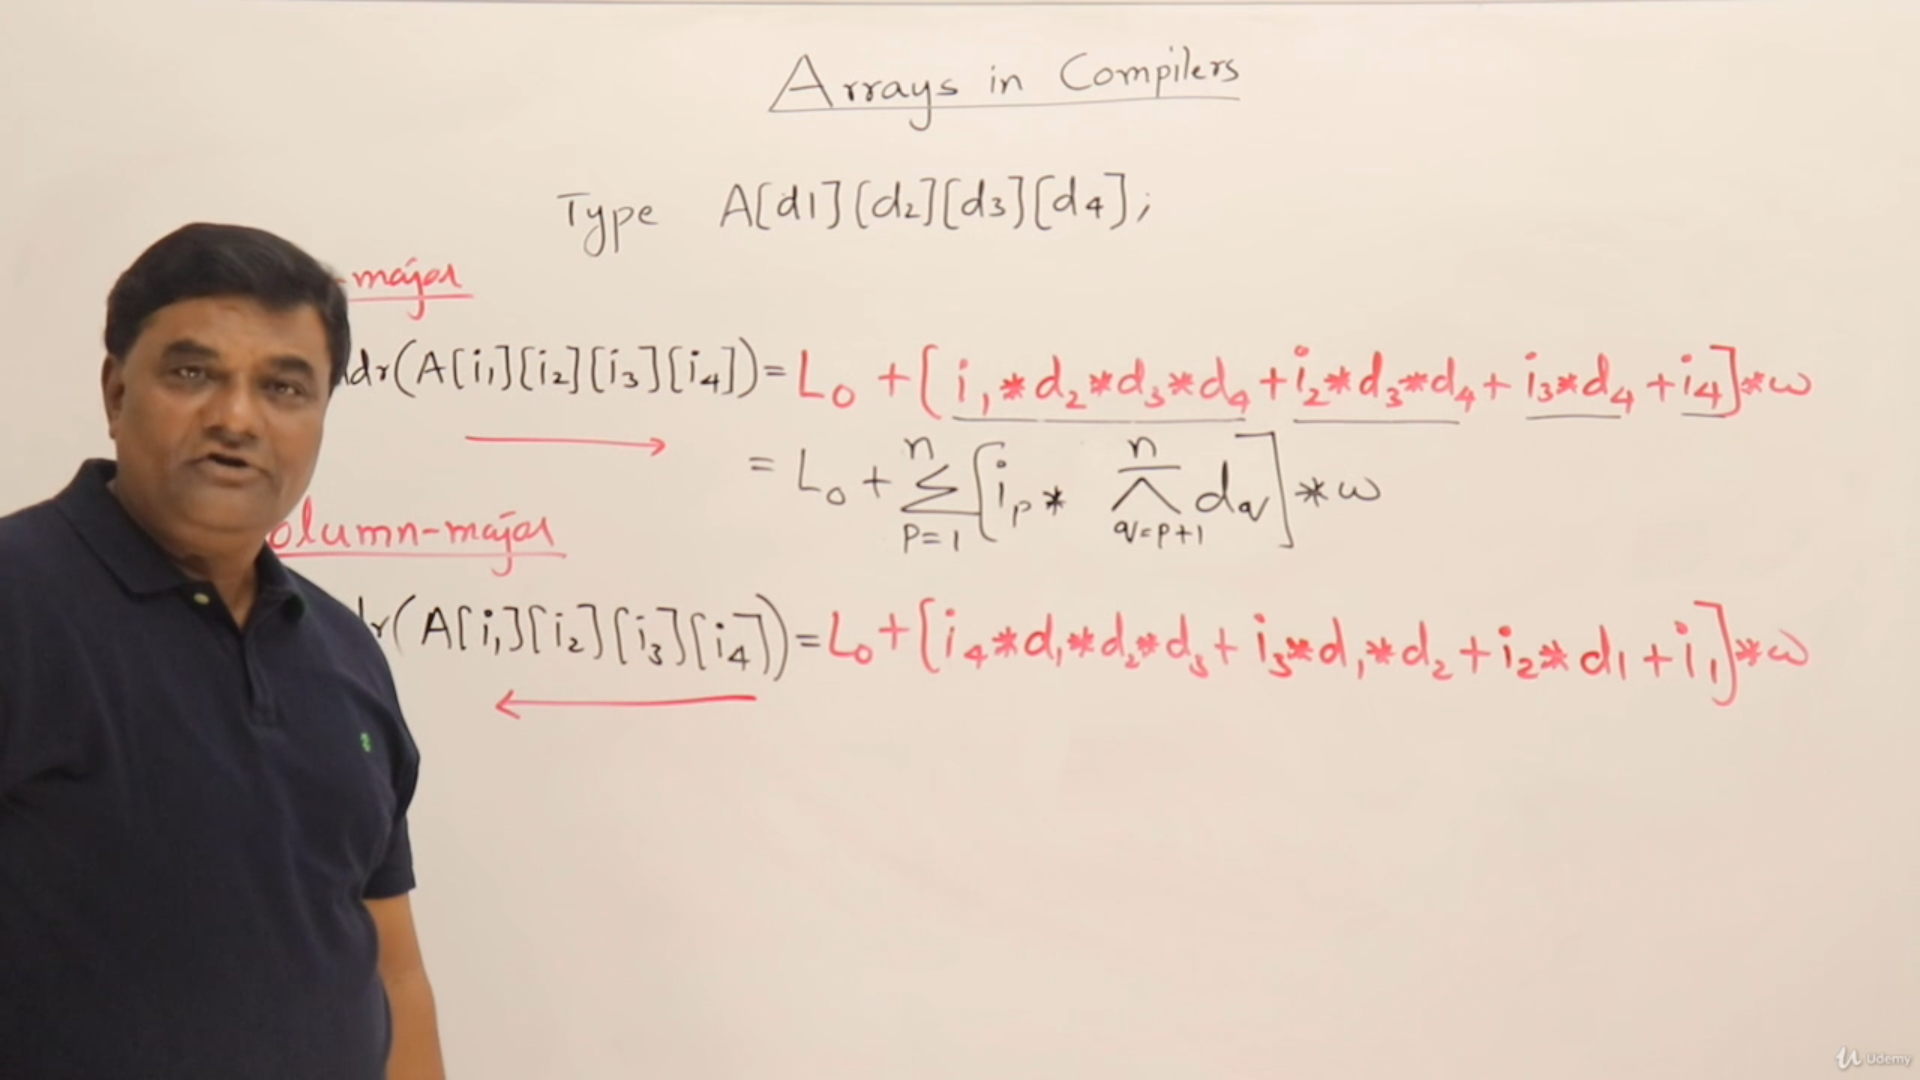 Arrays in Compilers
Type A[d1][d2][d3][d4];
-major
dr(A[i1][i2][i3][i4]) = L0 + [i1*d2*d3*d4 + i2*d3*d4 + i3*d4 + i4]*w
= L0 + n Σ p=1 [ip * n Π q=p+1 dq] * w
olumn-major
r(A[i1][i2][i3][i4]) = L0 + [i4*d1*d2*d3 + i3*d1*d2 + i2*d1 + i1]*w
Udemy